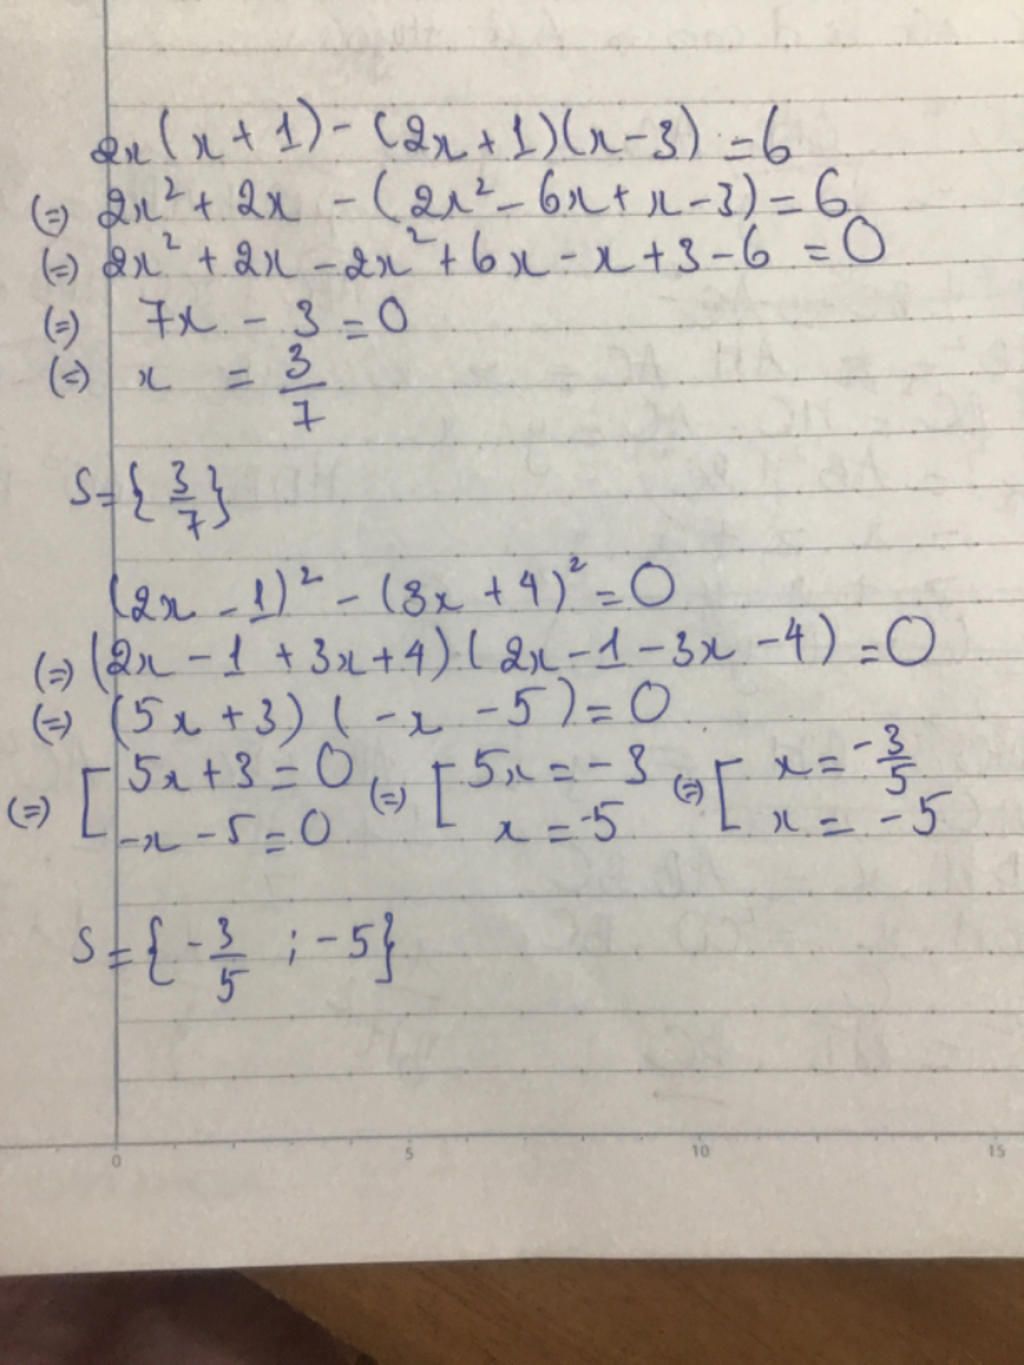 2x(x+1) - (2x+1)(x-3) = 6
(=) 2x² + 2x - (2x² - 6x + x - 3) = 6
(=) 2x² + 2x - 2x² + 6x - x + 3 - 6 = 0
(=) 7x - 3 = 0
(=) x = 3/7
S = {3/7}
(2x - 1)² - (3x + 4)² = 0
(=) (2x - 1 + 3x + 4).(2x - 1 - 3x - 4) = 0
(=) (5x + 3)(-x - 5) = 0
(=) [ 5x + 3 = 0 (=) [ 5x = -3 (=) [ x = -3/5
-x - 5 = 0 x = -5 x = -5
S = {-3/5 ; -5}
0 5 10 15